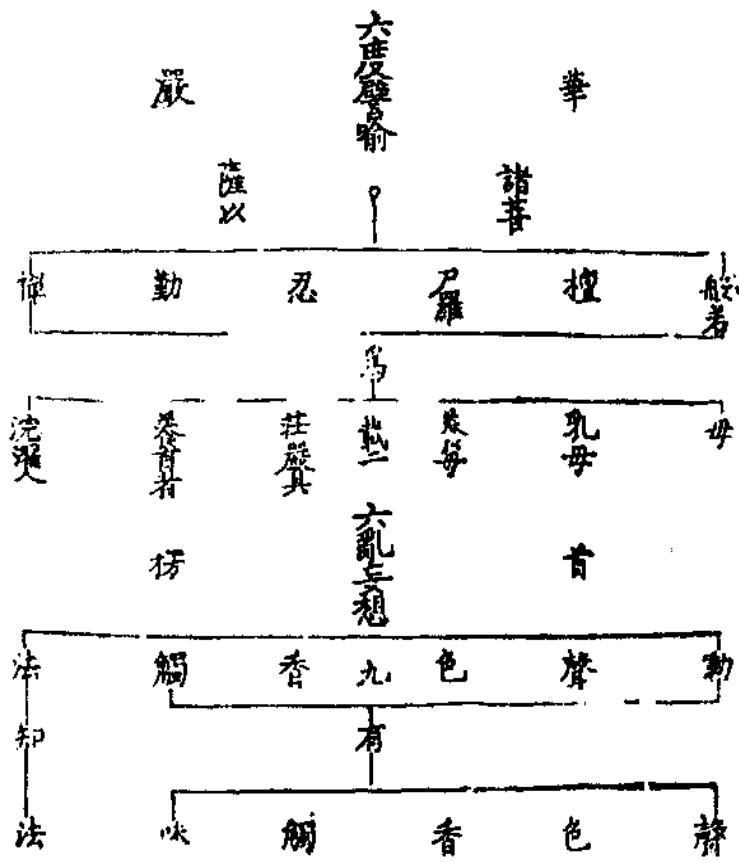 六度譬喻
華
嚴
諸菩
薩以
般若
檀
尸羅
忍
勤
禪
為
母
乳母
養母
莊嚴具
養育者
浣濯人
六亂妄想
首
楞
動
聲
色
九
香
觸
法
有
知
聲
色
香
觸
味
法